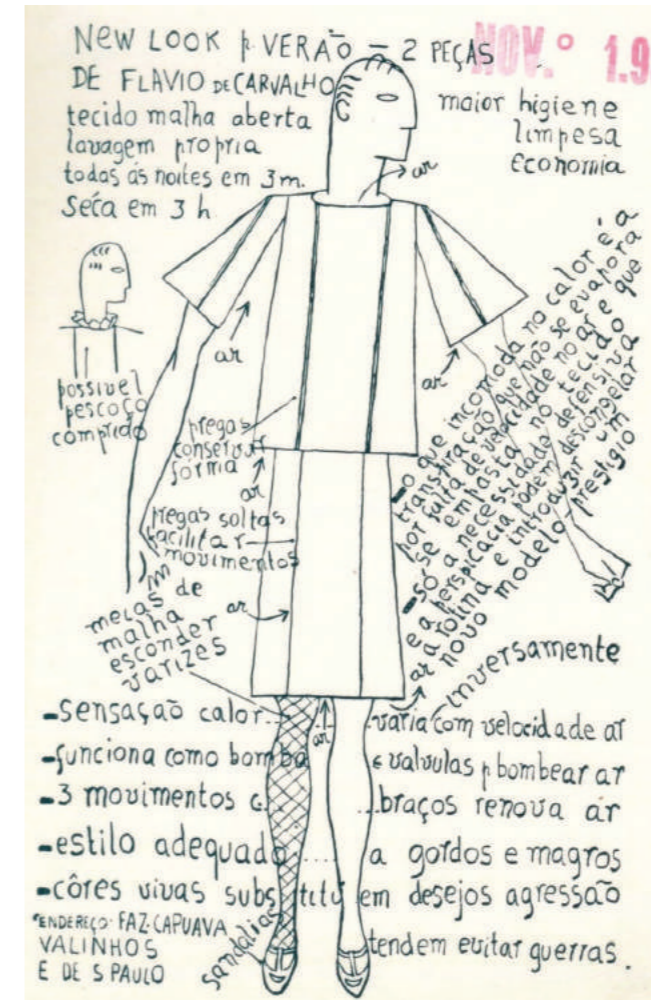 NEW LOOK p. VERÃO — 2 PEÇAS
DE FLAVIO DE CARVALHO
NOV.º 1.9
tecido malha aberta
lavagem propria
todas ás noites em 3m.
Séca em 3 h
maior higiene
limpesa
economia
ar
possivel
pescoço
comprido
ar
ar
pregas
conservar
fórma
ar
pregas soltas
facilitar
movimentos
ar
meias de
malha
esconder
varizes
-o que incomoda no calor é a
transpiração que não se evapora
por falta de velocidade no ar e que
se empasta no tecido
-só a necessidade defensiva
e a perspicacia podem descongelar
a rotina e introduzir um
novo modelo prestigio
ar
inversamente
-sensação calor.... ....varia com velocidade ar
ar
-funciona como bomba e valvulas p. bombear ar
-3 movimentos c. ...braços renova ár
-estilo adequado .... a gordos e magros
-côres vivas substituem desejos agressão
tendem evitar guerras.
ENDEREÇO: FAZ. CAPUAVA
VALINHOS
E DE S PAULO
sandalias